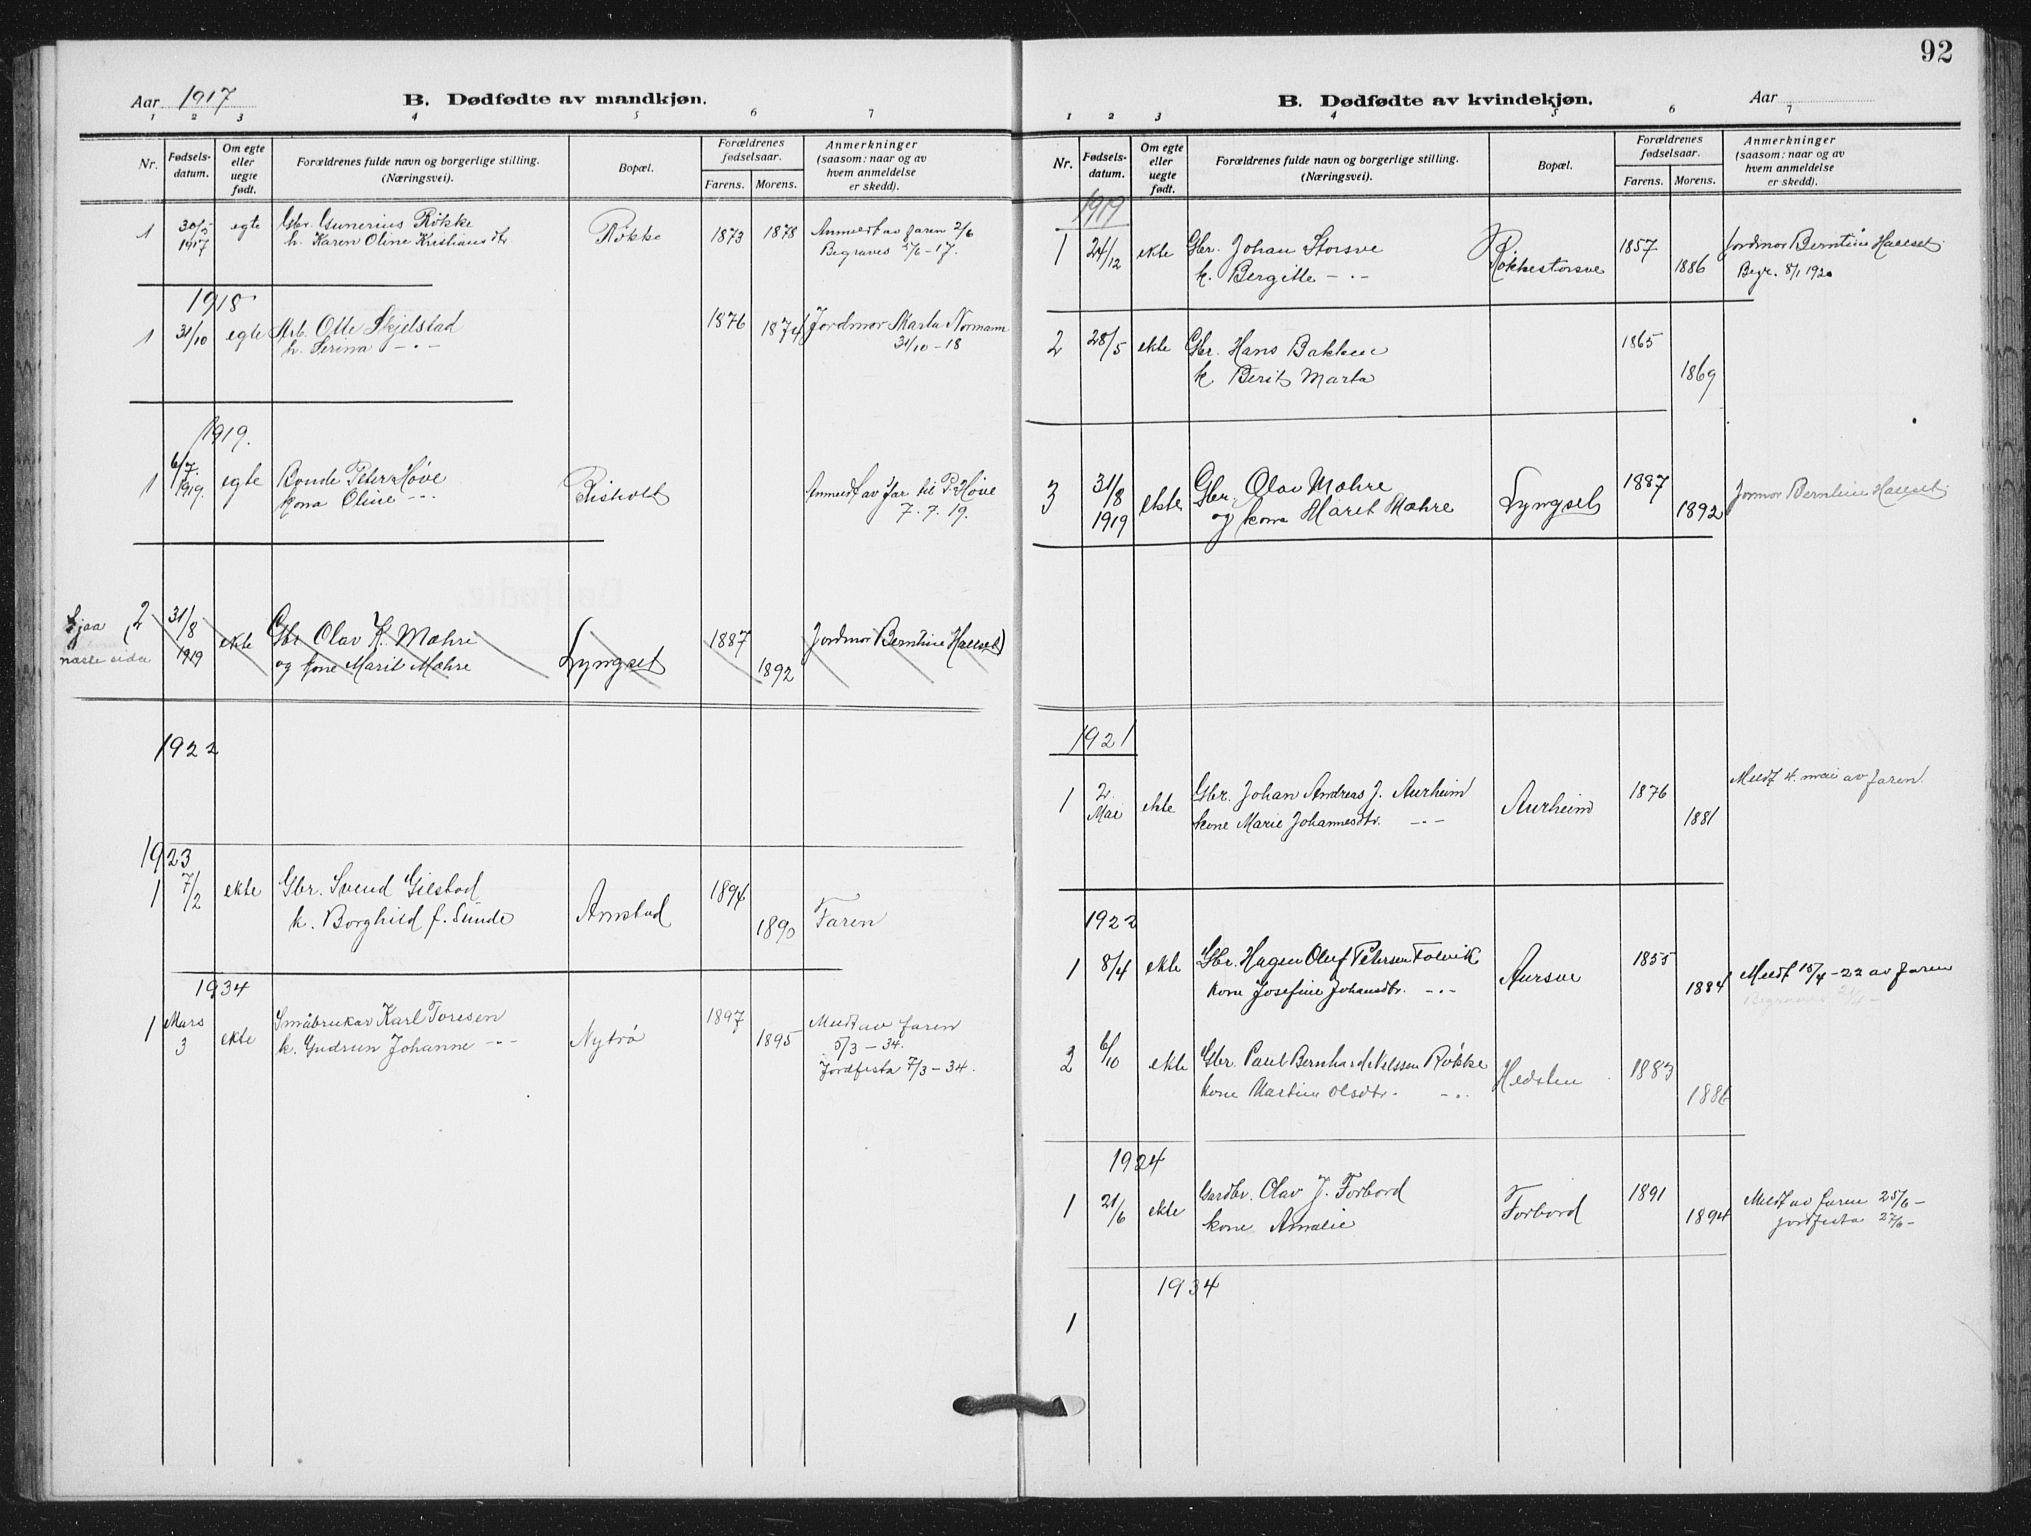 92
Aar 1917
B. Dødfødte av mandkjøn.
1 2 3 4 5 6 7
Nr.
Fødsels-
datum.
Om egte
eller
uegte
født.
Forældrenes fulde navn og borgerlige stilling.
(Næringsvei).
Bopæl.
Forældrenes
fødselsaar.
Farens. Morens.
Anmerkninger
(saasom: naar og av
hvem anmeldelse
er skedd).
1 30/5 1917 egte Gbr. Gunerius Røkke Røkke 1873 1878 Anmeldt av faren 2/6
h. Karen Oline Kristiansdtr Begraves 2/6-17.
1918
1 31/10 egte Arb. Otte Skjelstad 1876 1874 Jordmor Marta Normann
h. Serina -"- 31/10-18
1919.
1 6/7. 1919. egte Bonde Peter Høve Risholt Anmeldt av far til P. Høve
kona Oline -"- 7.7.19.
Sjaa
næste sida
2 31/8 1919 ekte Gbr Olav K. Mæhre Lyngset 1887 Jordmor Berntine Hallset)
og kone Marit Mæhre 1892
1922
1923
1 7/2 ekte Gbr. Svend Gilstad Arnstad 1894 Faren
k. Borghild f. Sunde 1890
1934
1 Mars 3 ekte Småbrukar Karl Toresen Nytrø 1897 Meldt av faren
k. Gudrun Johanne -"- 1895 5/3-34.
Jordfesta 7/3-34.
B. Dødfødte av kvindekjøn.
Aar
1 2 3 4 5 6 7
Nr.
Fødsels-
datum.
Om egte
eller
uegte
født.
Forældrenes fulde navn og borgerlige stilling.
(Næringsvei).
Bopæl.
Forældrenes
fødselsaar.
Farens. Morens.
Anmerkninger
(saasom: naar og av
hvem anmeldelse
er skedd).
1919
1 24/12 ekte Gbr. Johan Storsve Røkkestorsve 1857 Jordmor Berntine Hallset.
k. Bergitte -"- 1886 Begr. 8/1 1920
2 28/5 ekte Gbr. Hans Bakken 1865
k. Berit Marta 1869
3 31/8 1919 ekte Gbr. Olav Mæhre Lyngset 1887 Jormor Berntine Hallset.
og kone Marit Mæhre 1892
1921
1 2. Mai ekte Gbr. Johan Andreas J. Aurheim Aurheim 1876 Meldt 4. mai av faren
kone Marie Johannesdtr. -"- 1881
1922
1 8/4 ekte Gbr. Hagen Oluf Petersen Folvik Aursve 1855 Meldt 15/4-22 av faren
kone Josefine Johansdtr. -"- 1884 Begraves 21/4-
2 6/10 ekte Gbr. Paul Bernhard Nelssen Røkke Hedsten 1883
kone Martine Olsdtr. -"- 1886
1924
1 21/6 ekte Gardbr. Olav J. Forbord Forbord 1891 Meldt av faren 25/6-
kone Amalie 1894 jordfesta 27/6-
1934
1